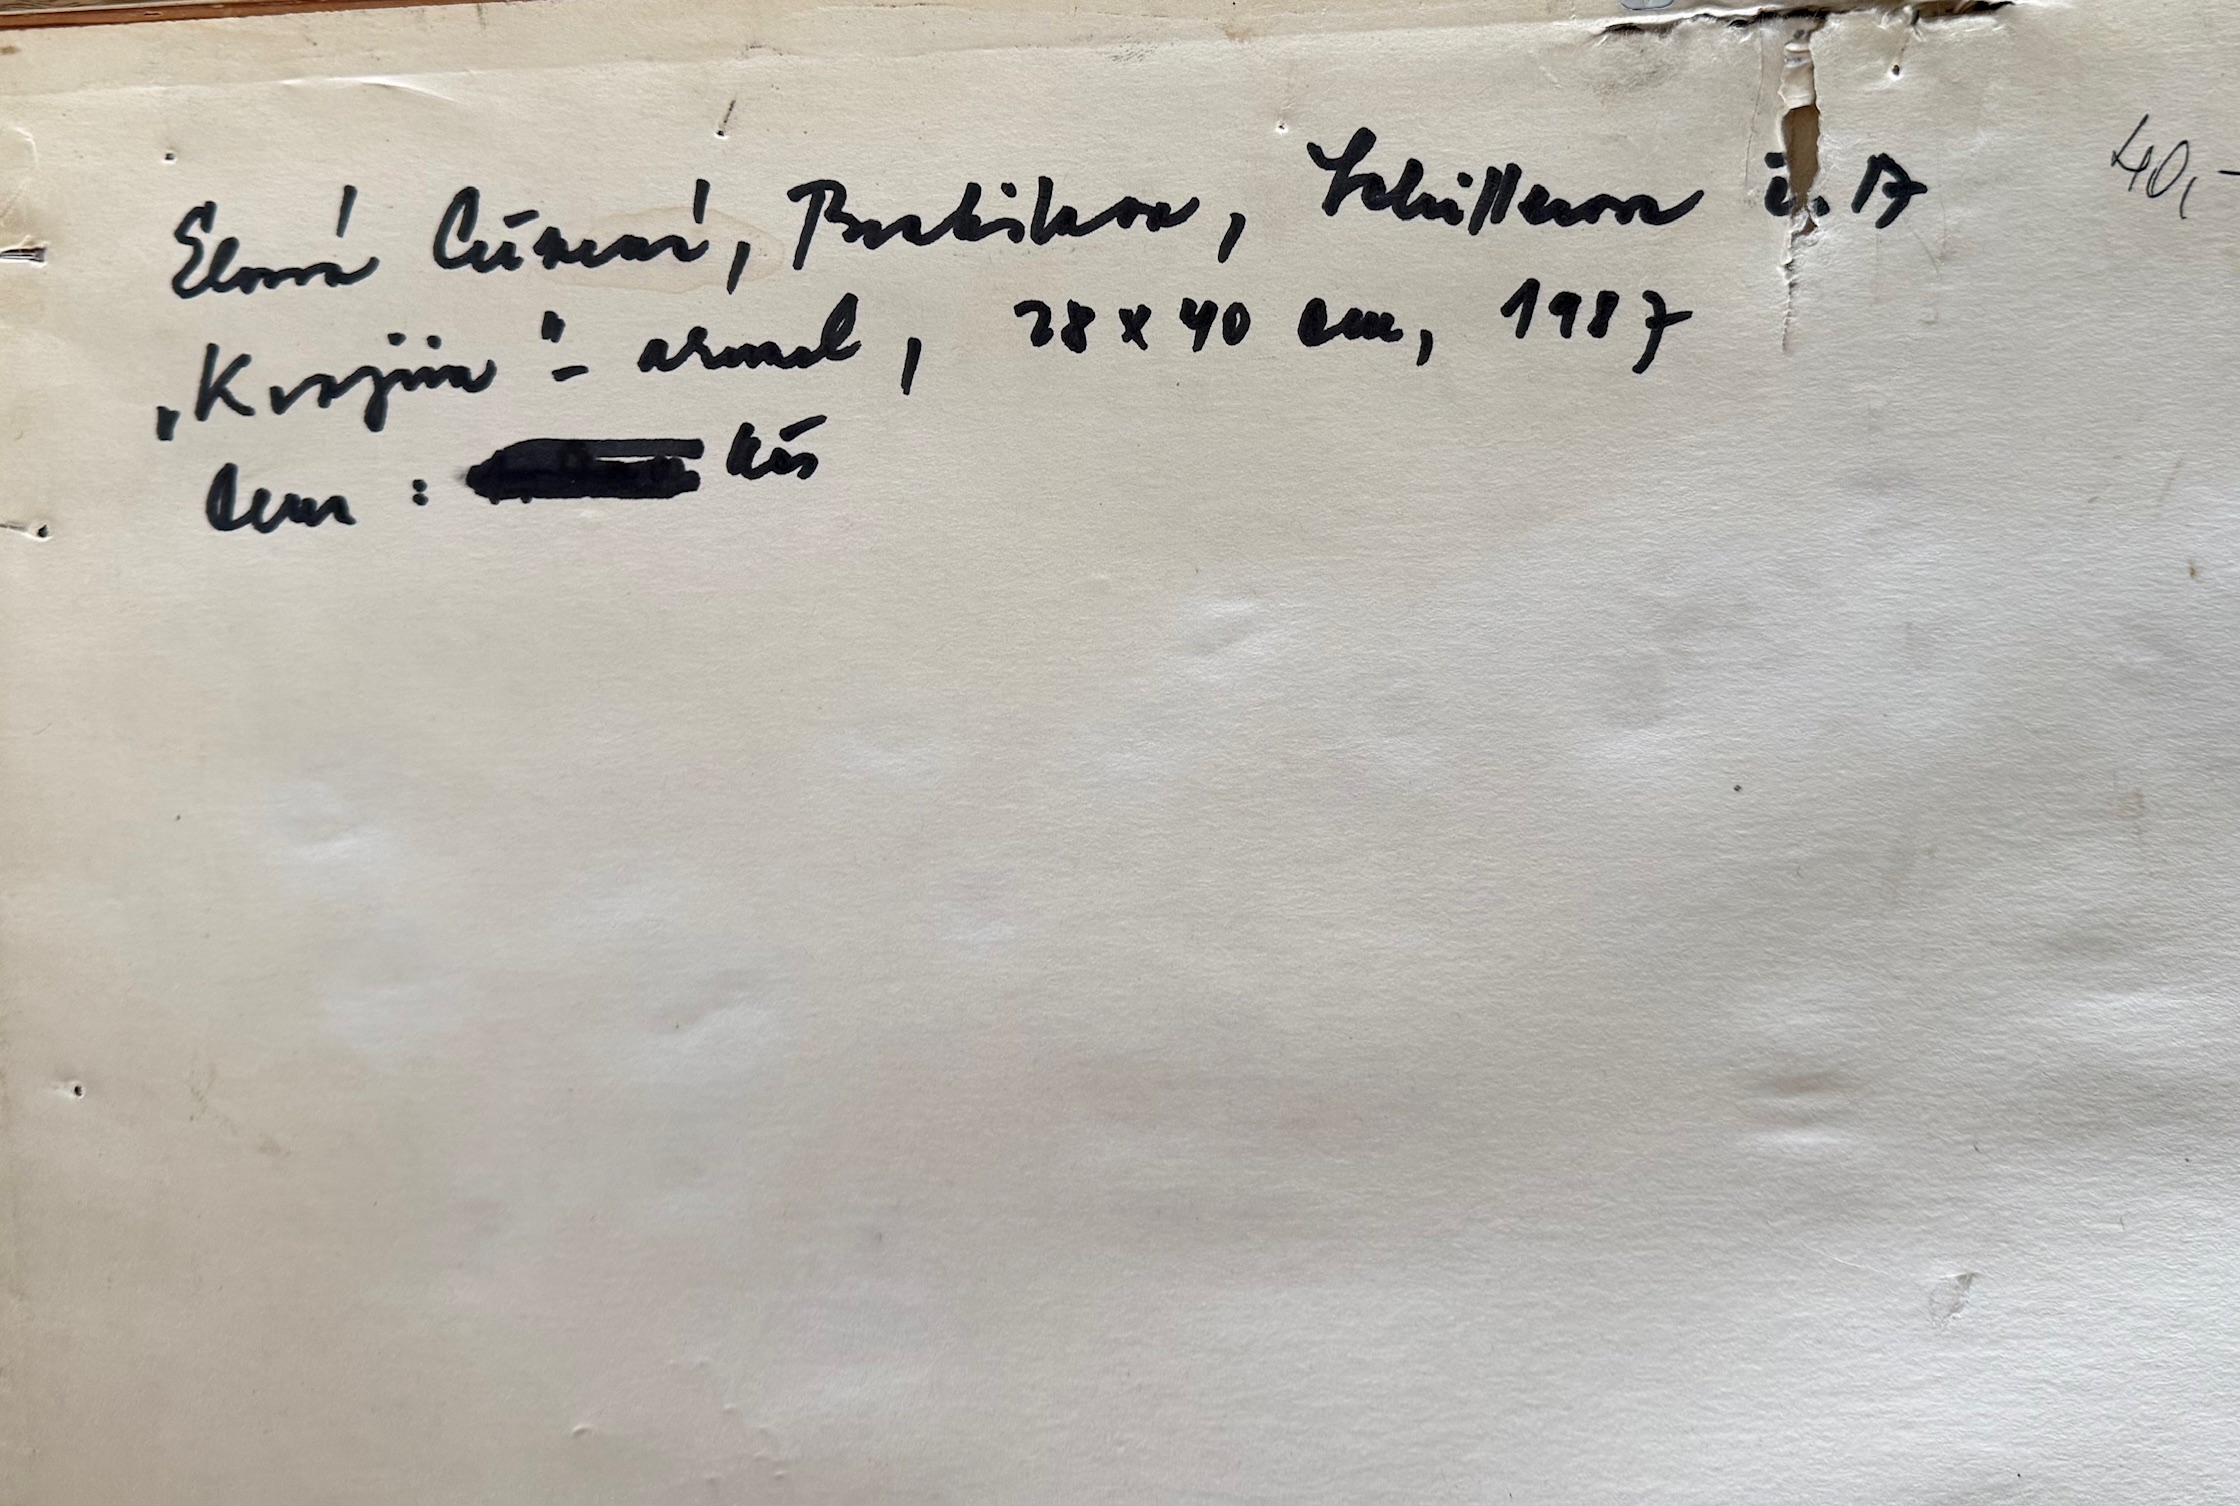 Elena Cúzená, Bratislava, Schillerova č. 17 40,-
„Krajina" - akvarel, 28 x 40 cm, 1987
Cena : Kčs